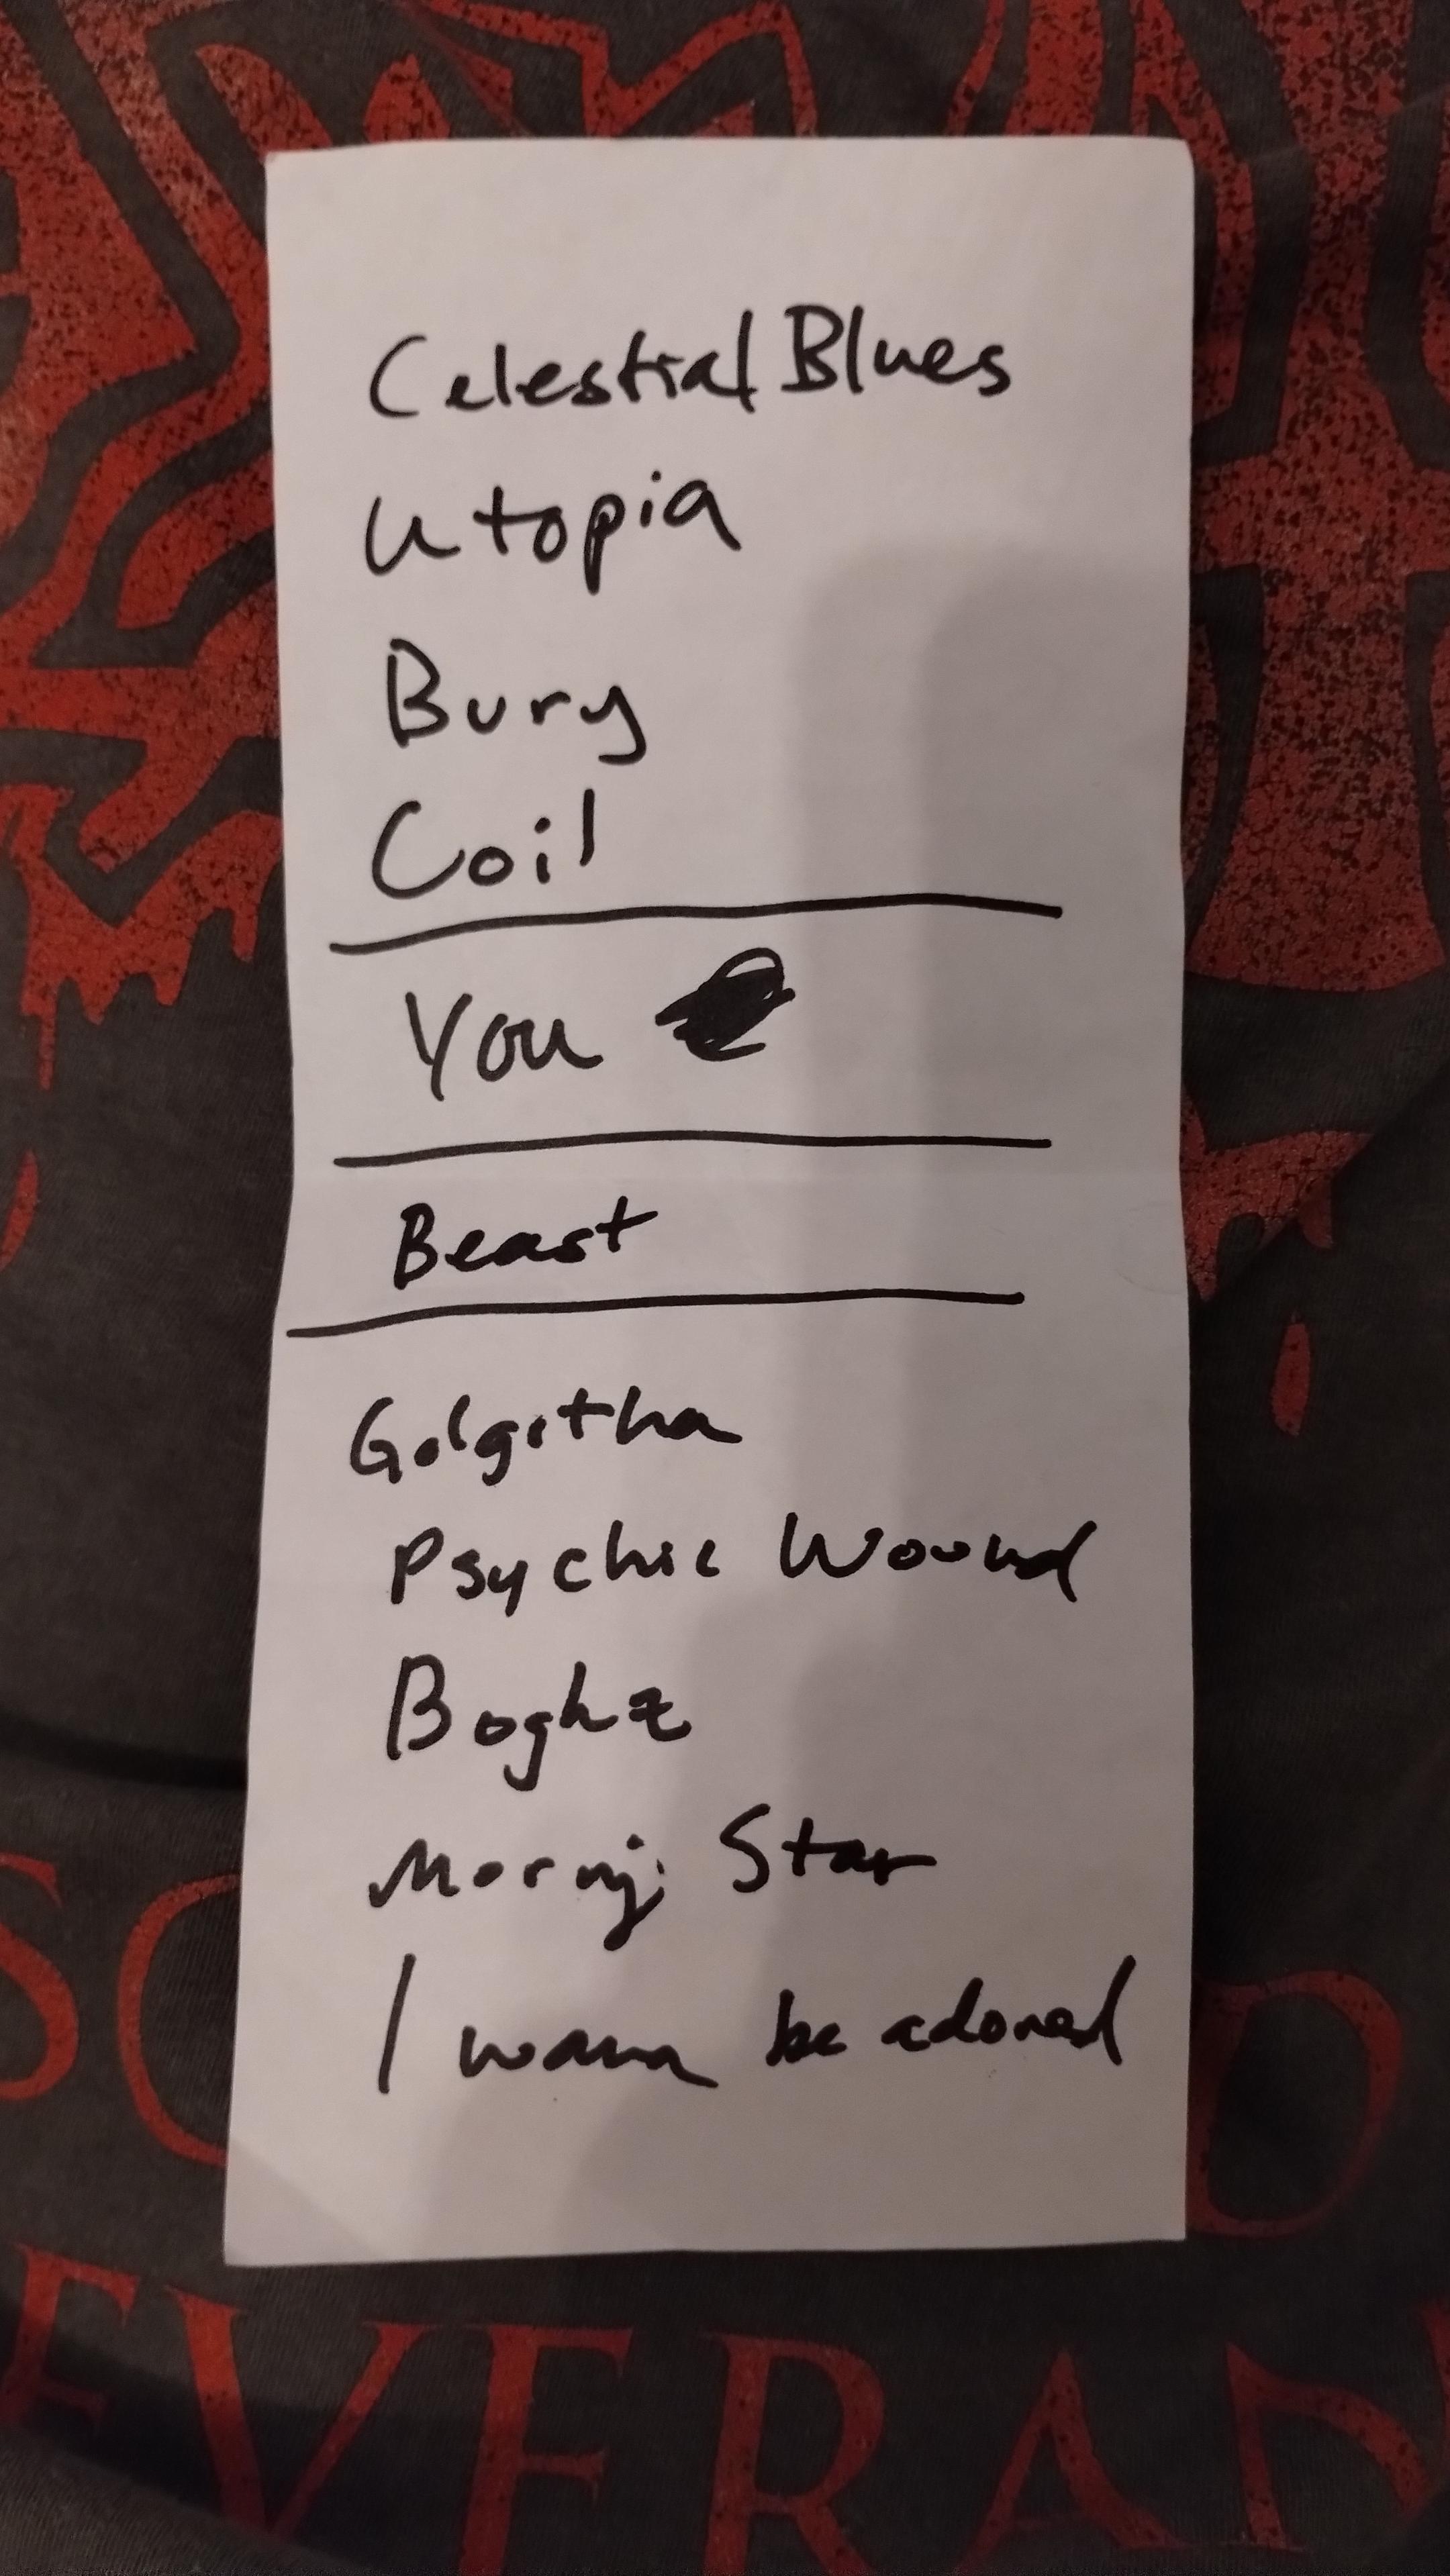 Celestial Blues
Utopia
Bury
Coil
You
Beast
Golgotha
Psychic Wound
Boghz
Morning Star
I wanna be adored